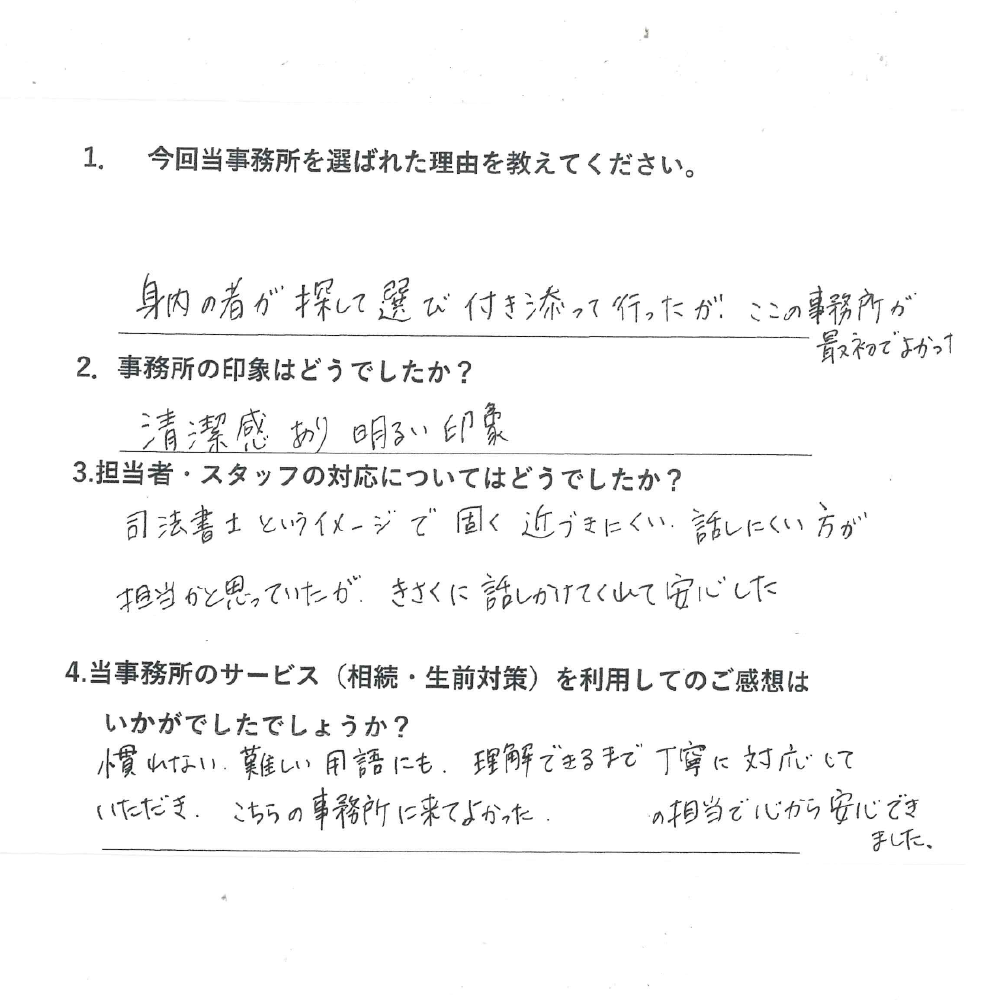 1. 今回当事務所を選ばれた理由を教えてください。
身内の者が探して選び付き添って行ったが、ここの事務所が
最初でよかった
2. 事務所の印象はどうでしたか？
清潔感あり明るい印象
3.担当者・スタッフの対応についてはどうでしたか？
司法書士というイメージで固く近づきにくい、話しにくい方が
担当かと思っていたが、きさくに話しかけてくれて安心した
4.当事務所のサービス（相続・生前対策）を利用してのご感想は
いかがでしたでしょうか？
慣れない、難しい用語にも、理解できるまで丁寧に対応して
いただき、こちらの事務所に来てよかった、 の担当で心から安心でき
ました。